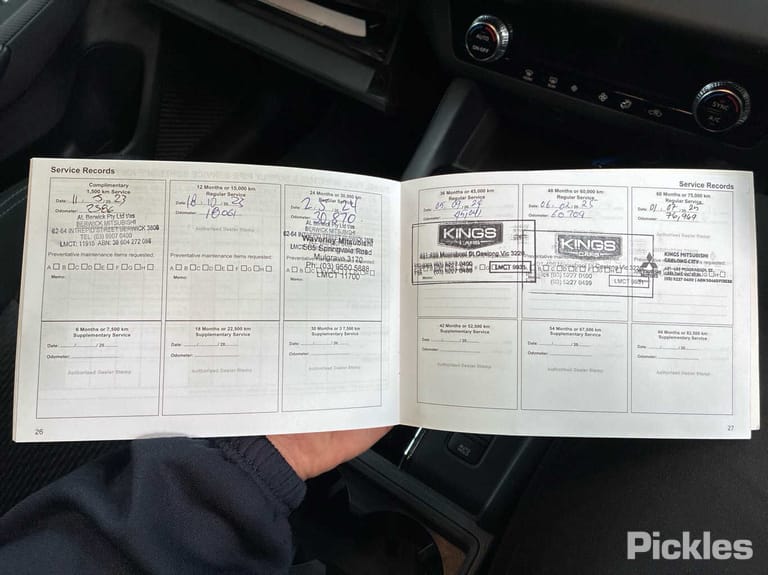 AUTO
ON•OFF
SYNC
A/C
Service Records
Complimentary
1,500 km Service
Date: 11. 5. 23
Odometer: 2586
BERWICK MITSUBISHI
62-64 INTREPID STREET BERWICK 3806
TEL: (03) 9007 0400
LMCT: 11915 ABN: 38 604 272 086
Preventative maintenance items requested:
A B C D E F G H
Memo:
12 Months or 15,000 km
Regular Service
Date: 18. 10. 23
Odometer: 18061
Authorised Dealer Stamp
Preventative maintenance items requested:
A B C D E F G H
Memo:
24 Months or 30,000 km
Regular Service
Odometer: 30,870
Waverley Mitsubishi
565 Springvale Road
Mulgrave 3170
Ph: (03) 9550 5688
LMCT 11700
6 Months or 7,500 km
Supplementary Service
Date: / / 20
Odometer:
Authorised Dealer Stamp
18 Months or 22,500 km
Supplementary Service
Date: / / 20
Odometer:
Authorised Dealer Stamp
30 Months or 37,500 km
Supplementary Service
Date: / / 20
Odometer:
Authorised Dealer Stamp
26
Service Records
36 Months or 45,000 km
Regular Service
Odometer:
KINGS
CARS
Preventative maintenance items requested:
Memo:
48 Months or 60,000 km
Regular Service
Odometer: 60,709
KINGS
CARS
LMCT 9931
60 Months or 75,000 km
Regular Service
Date: 01. 07. 25
Odometer: 76,969
KINGS MITSUBISHI
GEELONG CITY
42 Months or 52,500 km
Supplementary Service
Date: / / 20
Odometer:
Authorised Dealer Stamp
54 Months or 67,500 km
Supplementary Service
Date: / / 20
Odometer:
Authorised Dealer Stamp
66 Months or 82,500 km
Supplementary Service
Date: / / 20
Odometer:
Authorised Dealer Stamp
27
Pickles